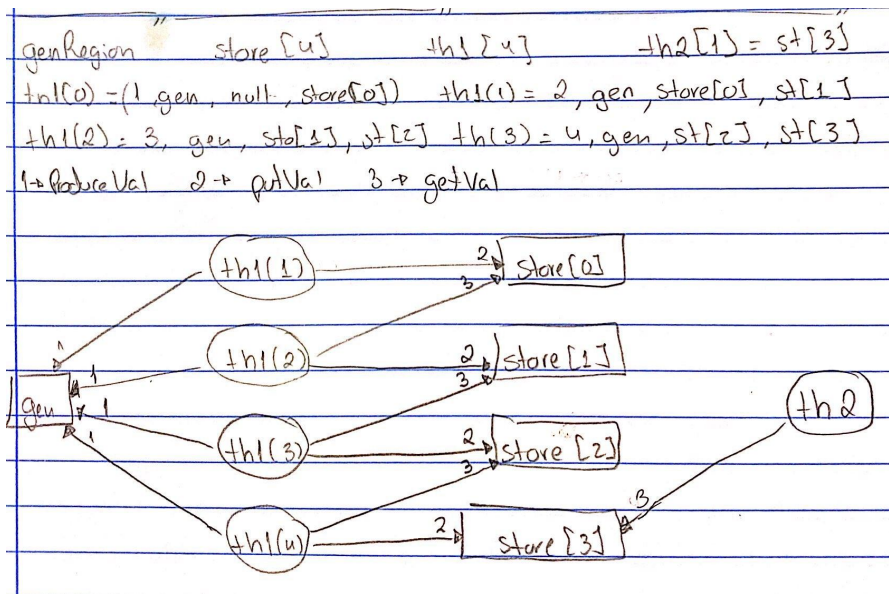 genRegion store [4] th1 [4] th2[1] = st[3]
th1(0) = (1, gen, null, store[0]) th1(1) = 2, gen, store[0], st[1]
th1(2) = 3, gen, sto[1], st[2] th(3) = 4, gen, st[2], st[3]
1→ProduceVal 2→ putVal 3→ getVal
th1(1) 2 store[0]
3
1
th1(2) 2 store[1]
1 3
gen th2
1
th1(3) 2 store [2]
1 3
3
th1(4) 2 store [3]